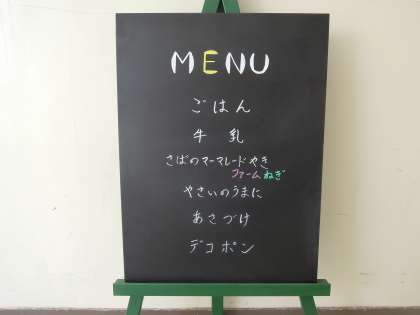 MENU
ごはん
牛乳
さばのマーマレードやき
ファームねぎ
やさいのうまに
あさづけ
デコポン